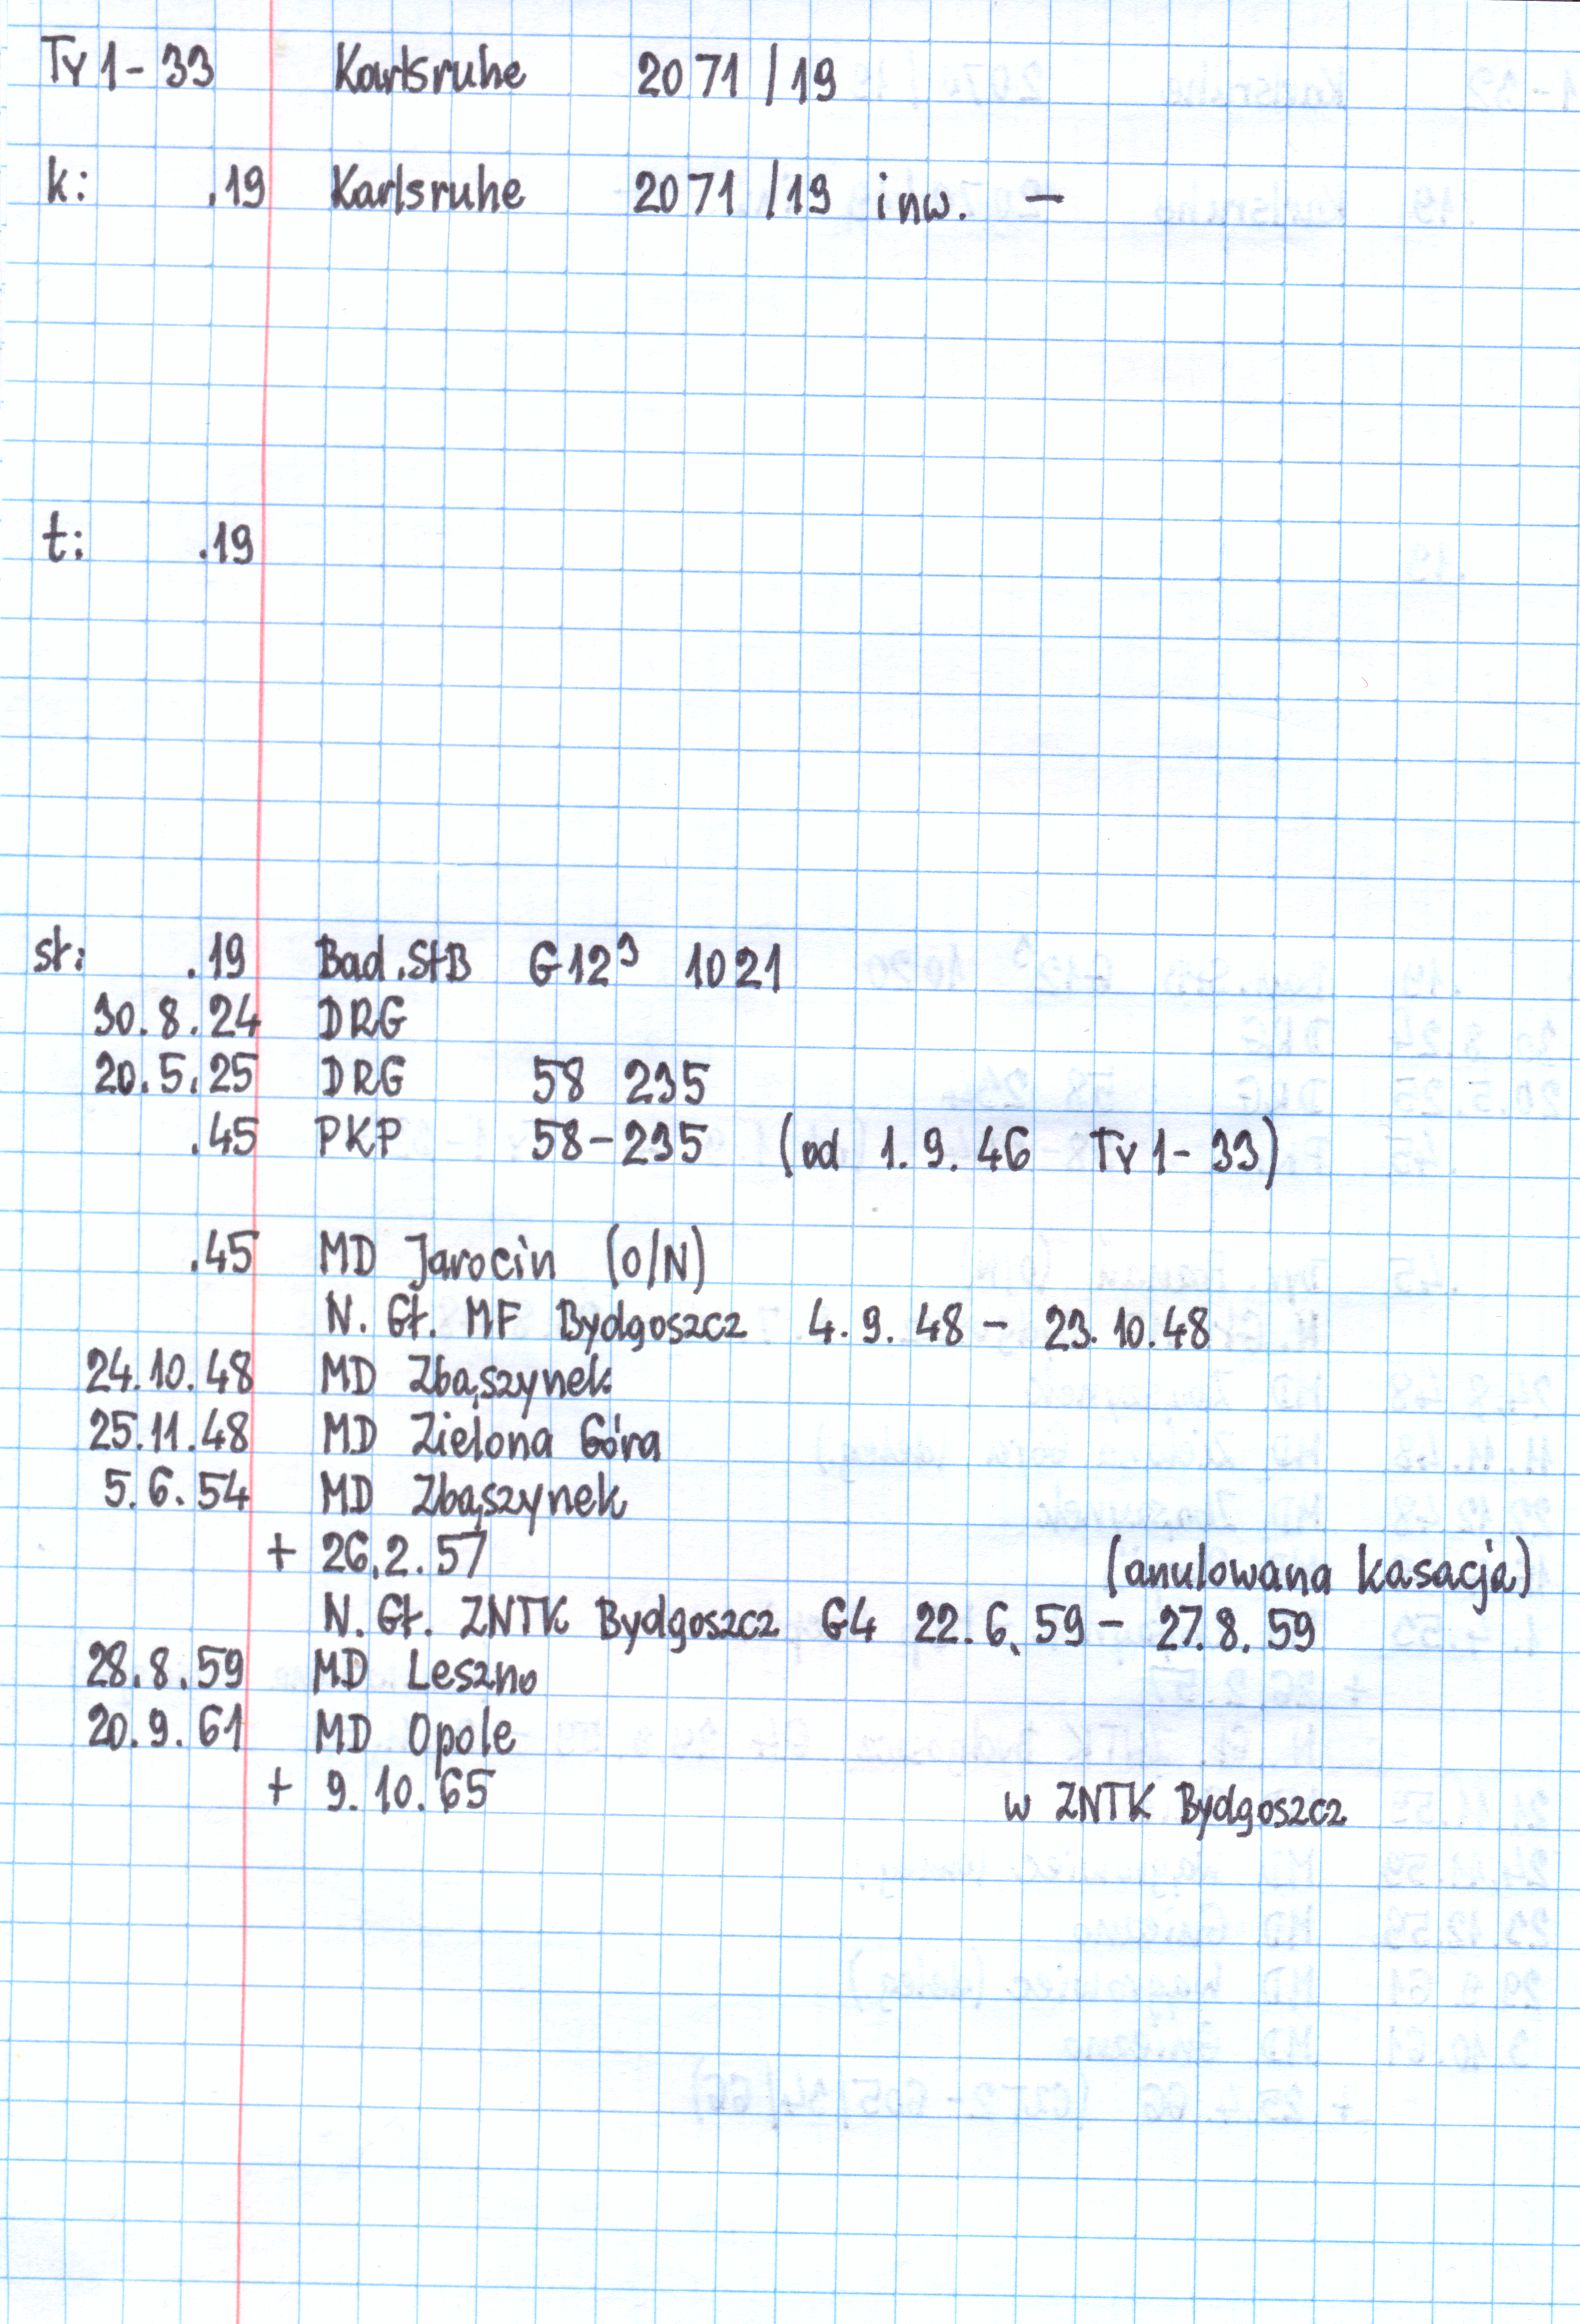 Ty 1-33 Karlsruhe 2071/19
k: .19 Karlsruhe 2071/19 inw. —
t: .19
st: .19 Bad.StB G12³ 1021
30.8.24 DRG
20.5.25 DRG 58 235
.45 PKP 58-235 (od 1.9.46 Ty 1-33)
.45 MD Jarocin (O/N)
N. Gł. MF Bydgoszcz 4.9.48 - 23.10.48
24.10.48 MD Zbąszynek
25.11.48 MD Zielona Góra
5.6.54 MD Zbąszynek
+ 26.2.57 (anulowana kasacja)
N. Gł. ZNTK Bydgoszcz G4 22.6.59 - 27.8.59
28.8.59 MD Leszno
20.9.61 MD Opole
+ 9.10.65 w ZNTK Bydgoszcz